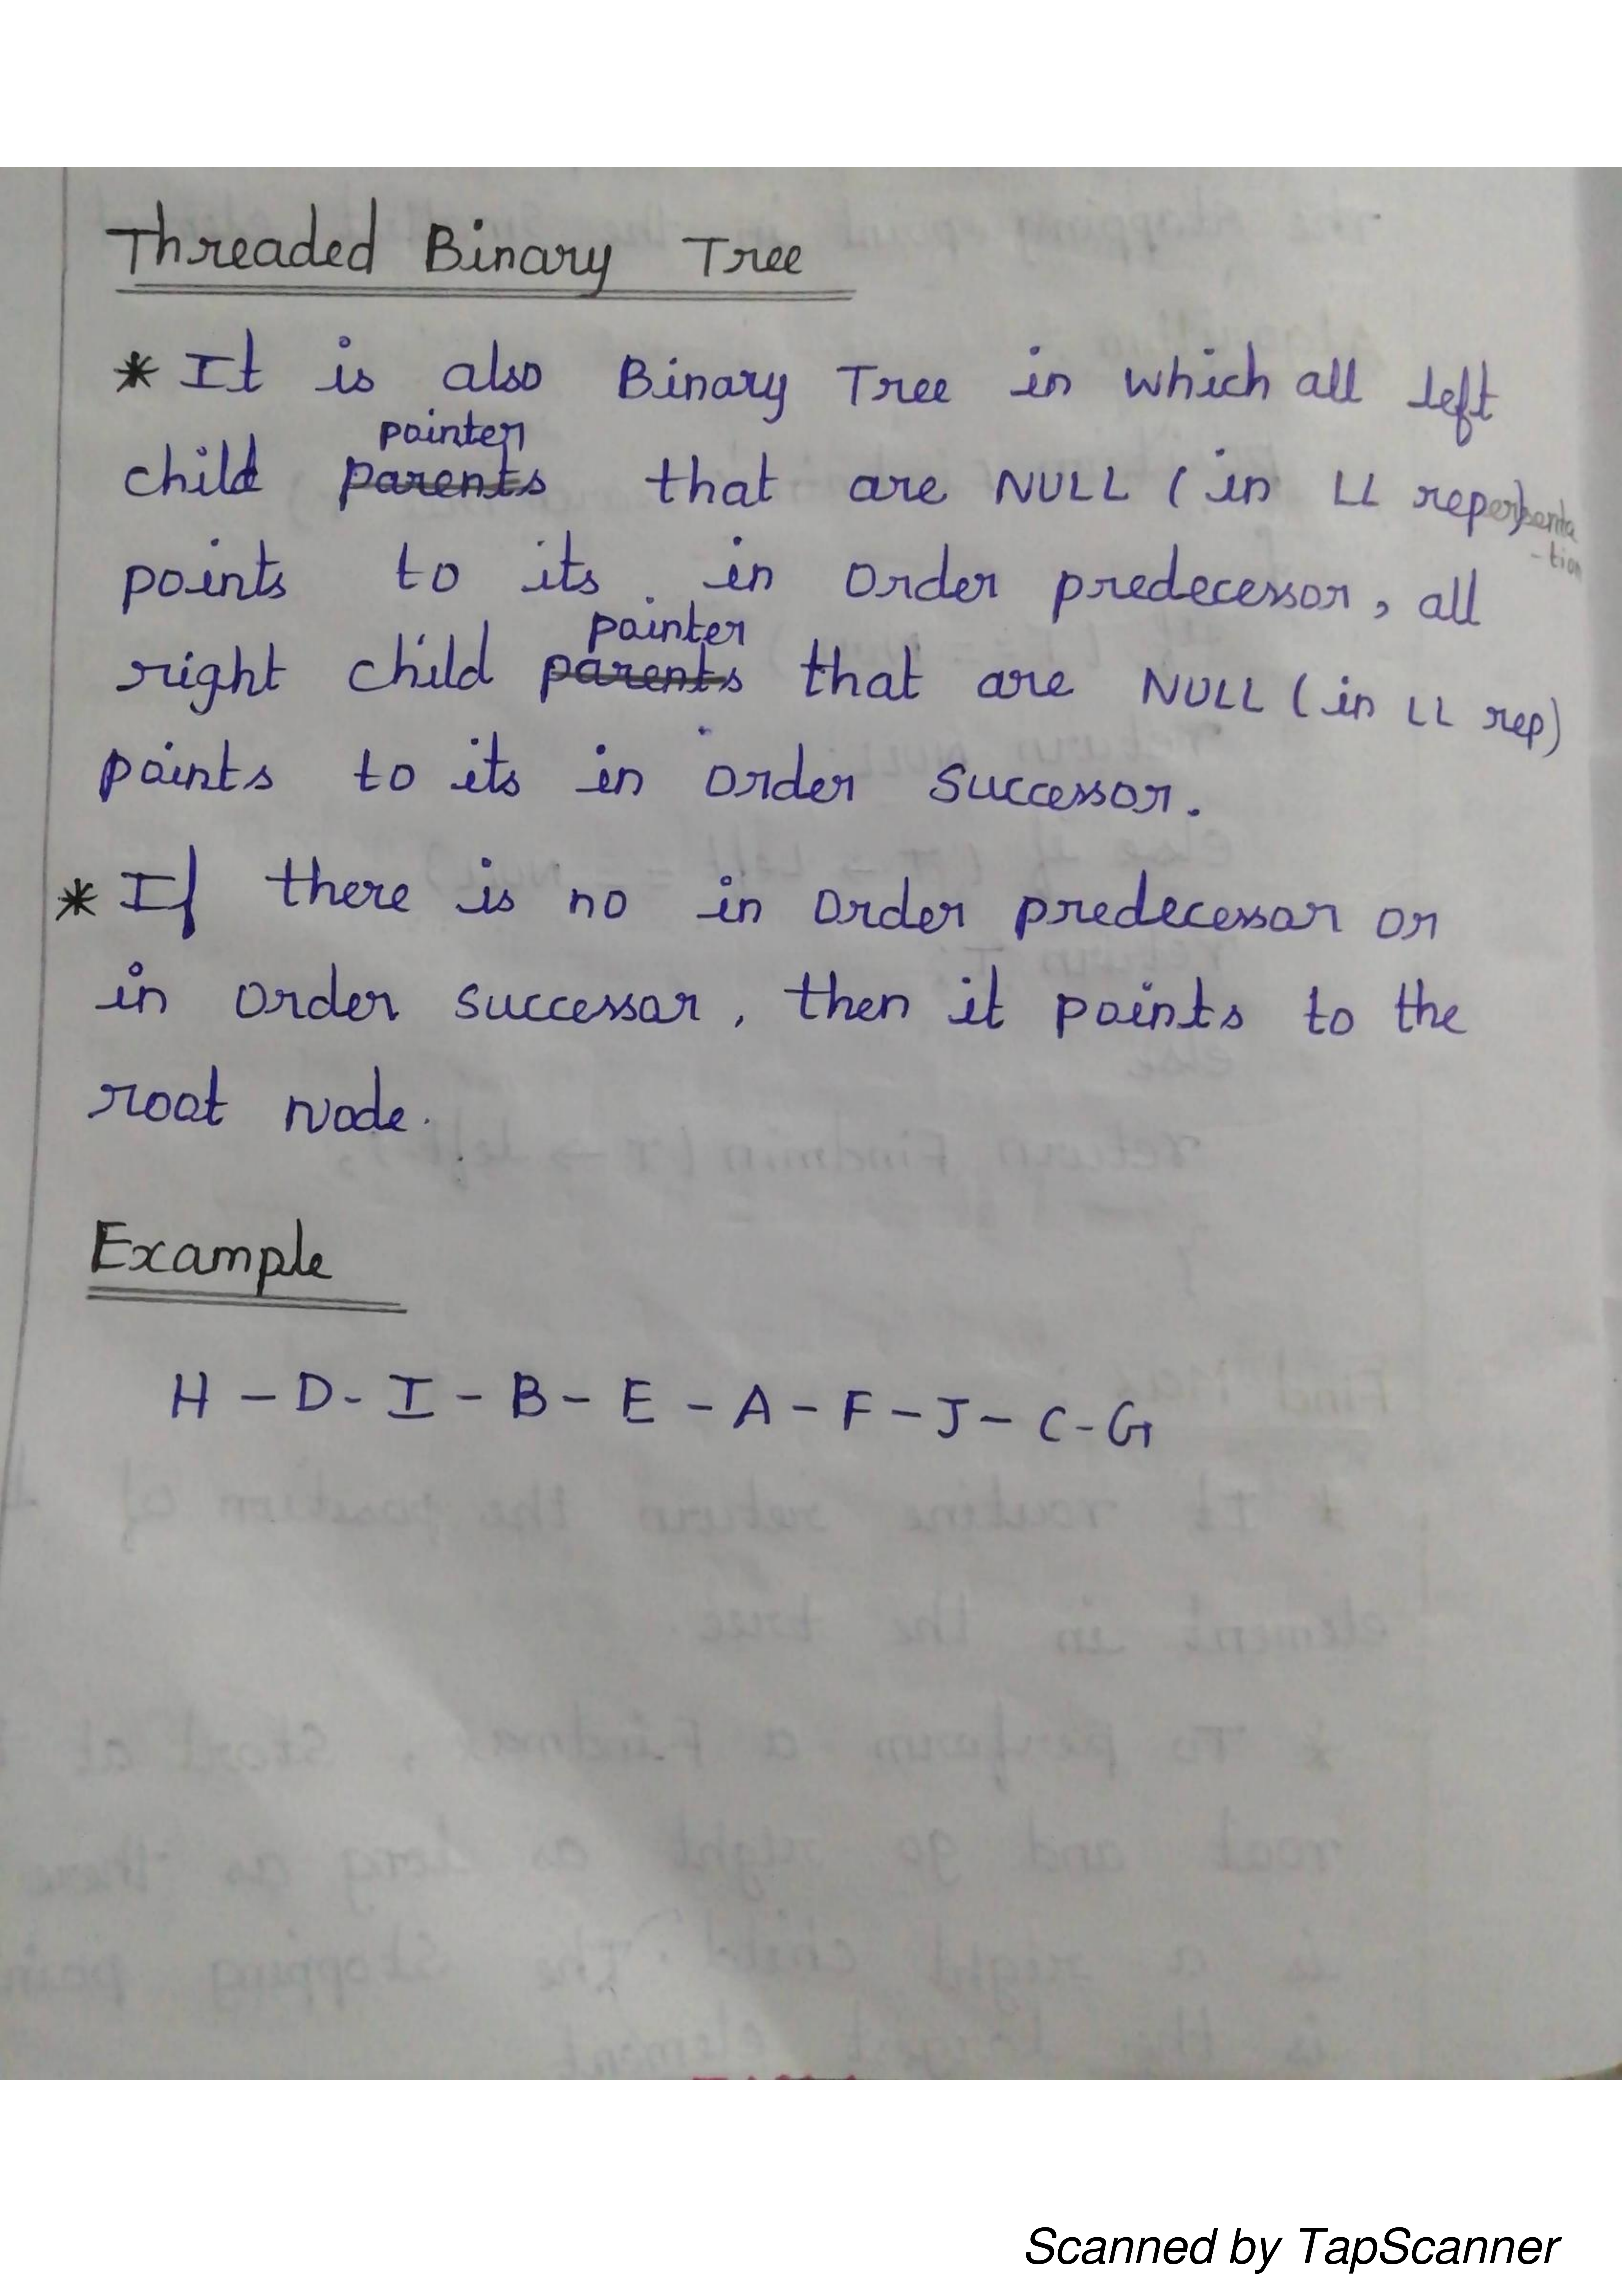 Threaded Binary Tree
* It is also Binary Tree in which all left
pointer
child parents that are NULL (in LL rep)
points to its in order predecessor, all
pointer
right child parents that are NULL (in LL rep)
points to its in order successor.
* If there is no in order predecessor or
in order successor, then it points to the
root node.
Example
H - D - I - B - E - A - F - J - C - G
Scanned by TapScanner